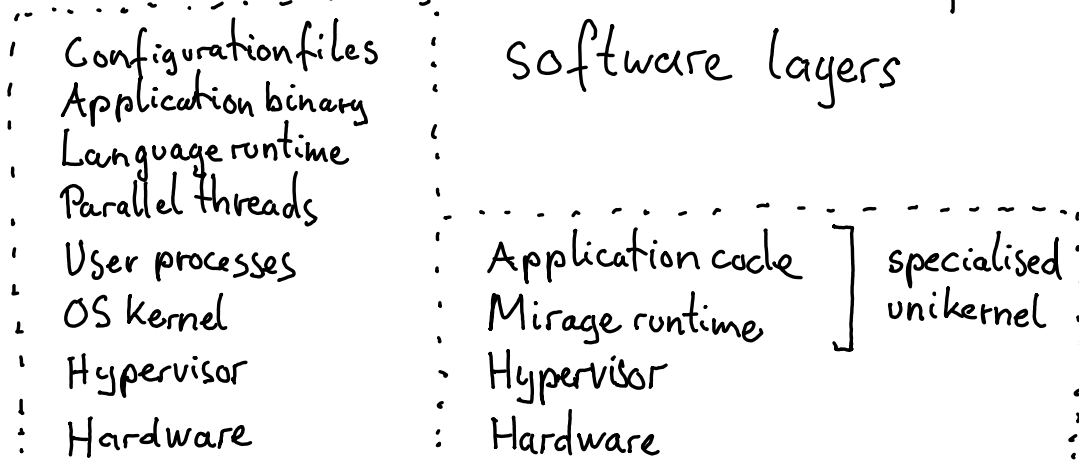 Configuration files
Application binary
Language runtime
Parallel threads
User processes
OS Kernel
Hypervisor
Hardware
software layers
Application code
Mirage runtime
Hypervisor
Hardware
specialised
unikernel